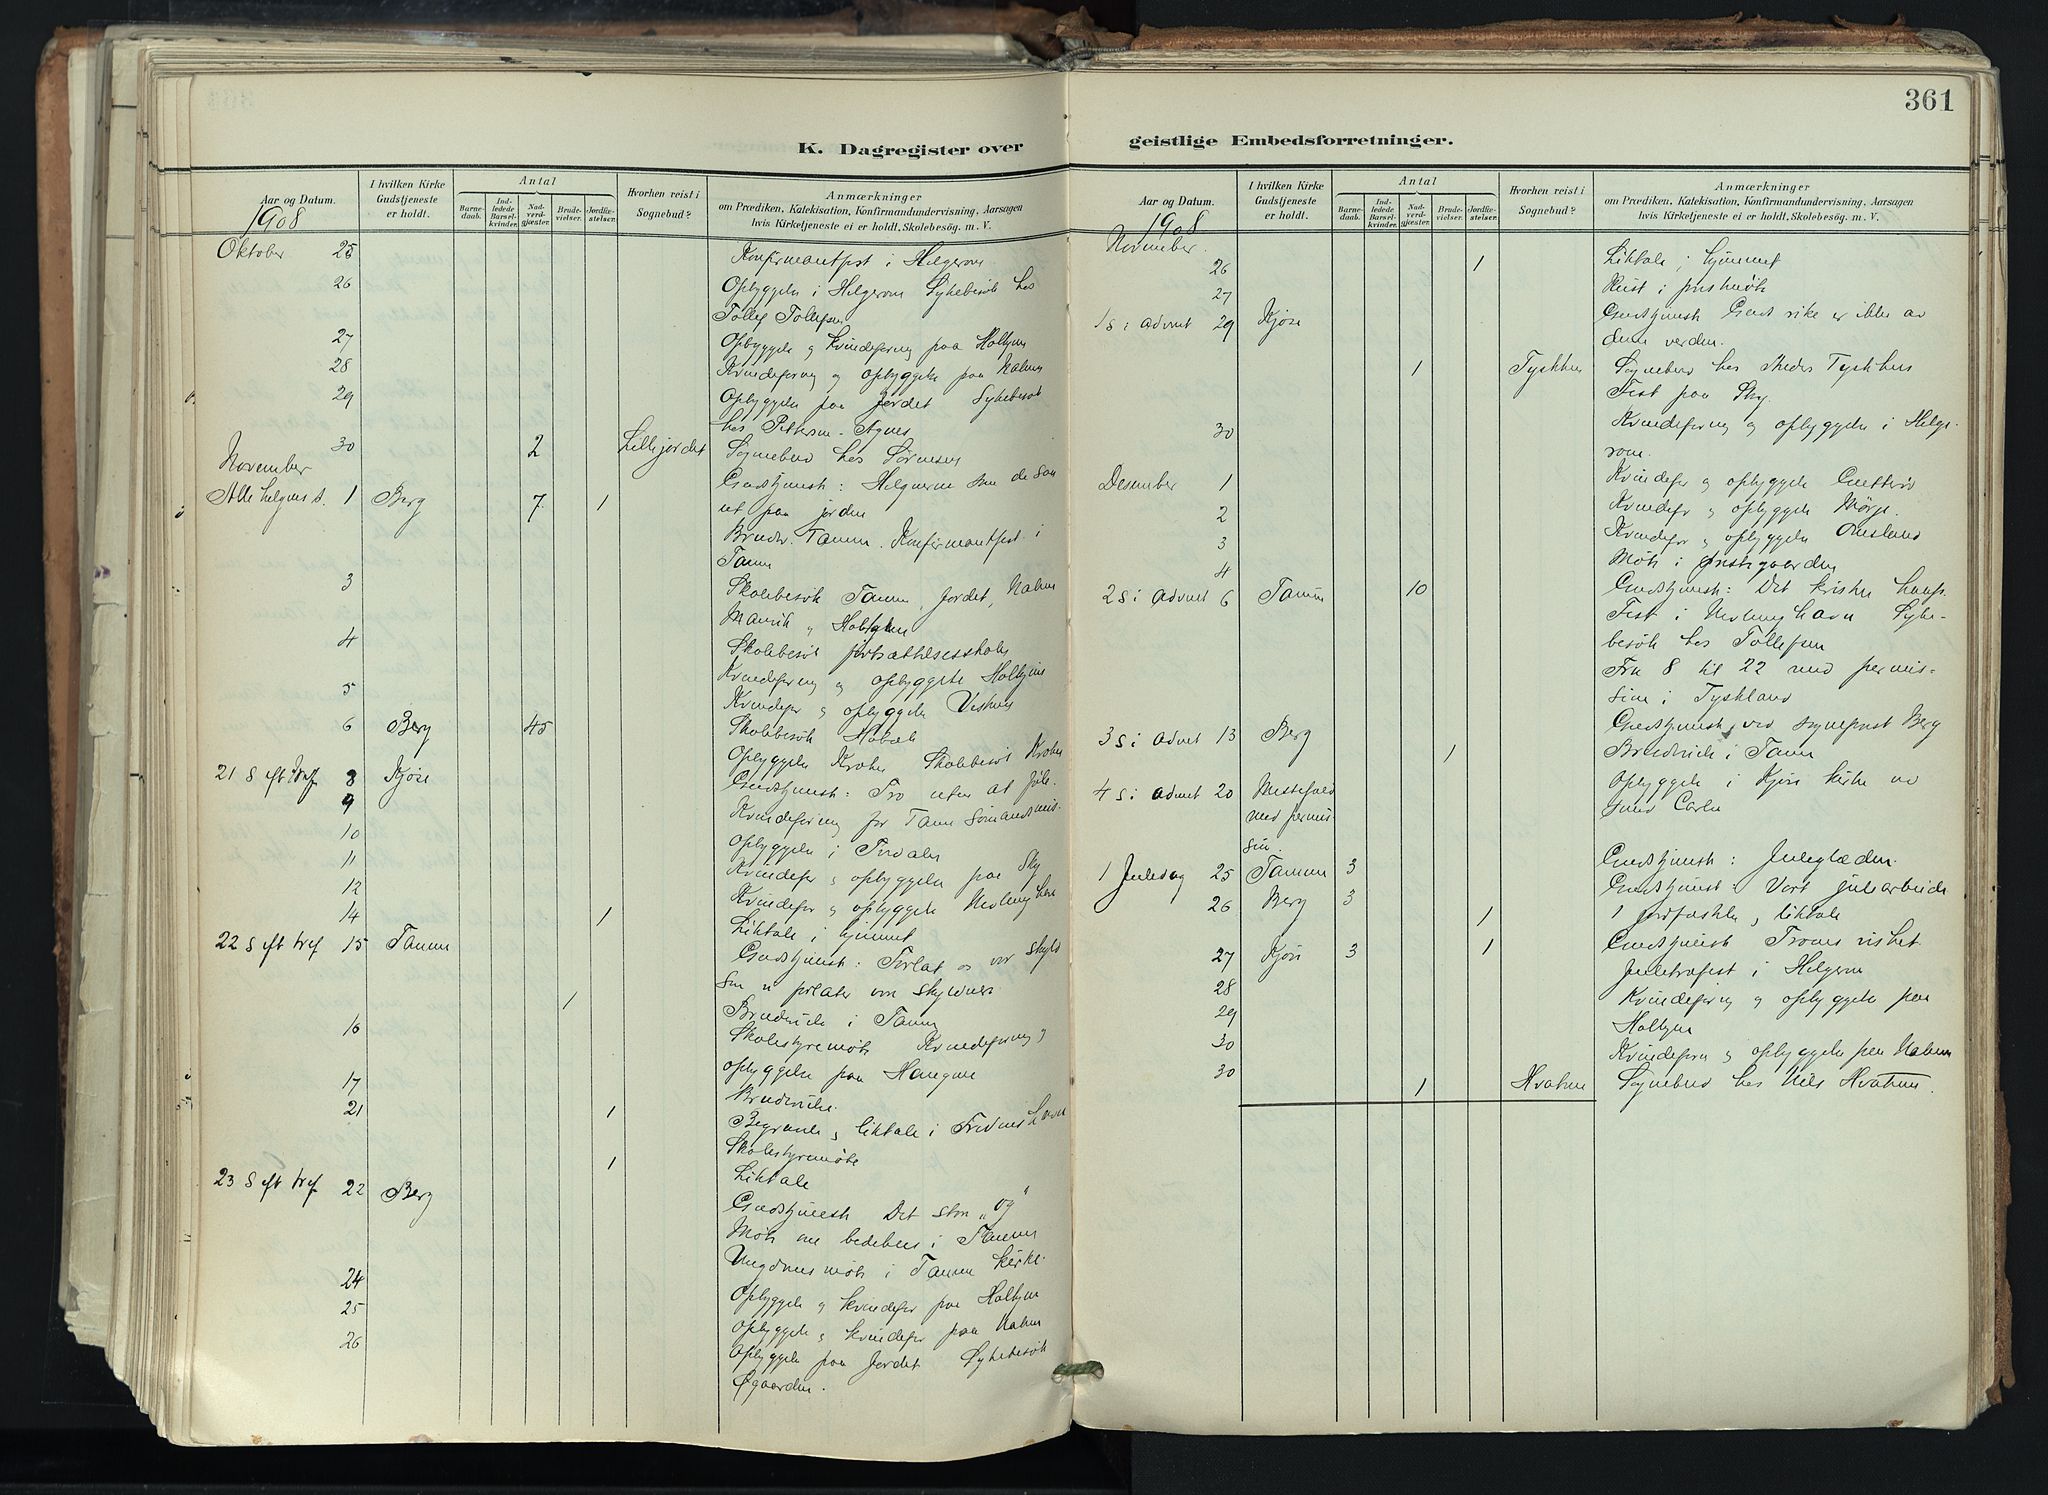 361
K. Dagregister over
geistlige Embedsforretninger.
Aar og Datum.
I hvilken Kirke Gudstjeneste er holdt.
Antal
Barnedaab.
Indledede Barselkvinder.
Nadverdgjester.
Brudevielser.
Jordfæstelser.
Hvorhen reist i Sognebud?
Anmærkninger
om Prædiken, Katekisation, Konfirmandundervisning, Aarsagen
hvis Kirketjeneste ei er holdt, Skolebesög. m. V.
1908
Oktober 25 Konfirmantfest i Helgeroen
26 Opbyggelse i Helgeroen Sykebesøk hos
Tollef Tollefsen
27 Opbyggelse og kvindeforening paa Holtgren
28 Kvindeforening og opbyggelse paa Nalum
29 Opbyggelse paa Jordet Sykebesøk
hos Pettersen - Agnes
30 2 Lillejordet Sognebud hos Sørensen
November
Alle helgens d. 1 Berg 7 1 Gudstjeneste: Helgnerne som de saa
ut paa jorden
Tanum. Konfirmantfest i
Tanum
3 Skolebesøk Tanum, Jordet, Nalum
4 Skolebesøk fortsættelsesskole
Kvindeforening og opbyggelse
5 Kvindefor og opbyggelse
6 Berg 45 Skolebesøk
Opbyggelse Skolebesøk
21 S eft tref 8 Kjøse Gudstjeneste: Tro uten at føle.
9 Kvindeforening for Tanum Sømandsmis.
10 Opbyggelse i
11 Kvindefor og opbyggelse paa Sky
12 Kvindefor og opbyggelse Nevlunghavn
14 1 Liktale i hjemmet
22 S eft tref 15 Tanum Gudstjeneste: Forlat os vor skyld
som vi forlater vore skyldnere
1 Brudevielse i Tanum
16 Skolestyremøte Kvindeforening og
opbyggelse paa
17 Brudevielse.
21 1 Begravelse og liktale i Fredriksvern
Skolestyremøte
1 Liktale
23 S eft tref 22 Berg Gudstjeneste Det store „og"
Møte om bedehus i Tanum
Ungdomsmøte i Tanum kirke.
24 Opbyggelse og kvindefor paa Holtgren
25 Opbyggelse og kvindefor paa Nalum
26 Opbyggelse paa Jordet Sykebesøk
Øgaarden.
Aar og Datum.
I hvilken Kirke Gudstjeneste er holdt.
Antal
Barnedaab.
Indledede Barselkvinder.
Nadverdgjester.
Brudevielser.
Jordfæstelser.
Hvorhen reist i Sognebud?
Anmærkninger
om Prædiken, Katekisation, Konfirmandundervisning, Aarsagen
hvis Kirketjeneste ei er holdt, Skolebesög. m. V.
1908
November.
26 1 Liktale i hjemmet
27 Reist i prestemøte
1 s i advent 29 Kjøse Gudstjeneste Guds rike er ikke av
denne verden.
1 Tyskhus Sognebud hos Tyskhus
Fest paa Sky.
30 Kvindeforening og opbyggelse i Helge-
roen.
Desember 1 Kvindefor og opbyggelse
2 Kvindefor og opbyggelse Mørje.
3 Kvindefor og opbyggelse Omsland
4 Møte i prestegaarden
2 s i advent 6 Tanum 10 Gudstjeneste: Det kristne haap.
Fest i Nevlunghavn Syke-
besøk hos Tollefsen
Fra 8 til 22 med permis-
sion i Tyskland
3 s i advent 13 Berg Gudstjeneste ved sogneprest Berg
1 Brudevielse i Tanum
4 s i advent 20 Messefald
med permis-
sion. Opbyggelse i Kjøse kirke ved
1 Juledag 25 Tanum 3 Gudstjeneste: Juleglæden.
26 Berg 3 1 Gudstjeneste: Vort julearbeide
1 jordfæstelse, liktale
27 Kjøse 3 1 Gudstjeneste Troens vished.
28 Juletræfest i Helgeroen
29 Kvindeforening og opbyggelse paa
Holtgren
30 Kvindeforen og opbyggelse paa Nalum
30 1 Hvatum Sognebud hos Nils Hvatum.